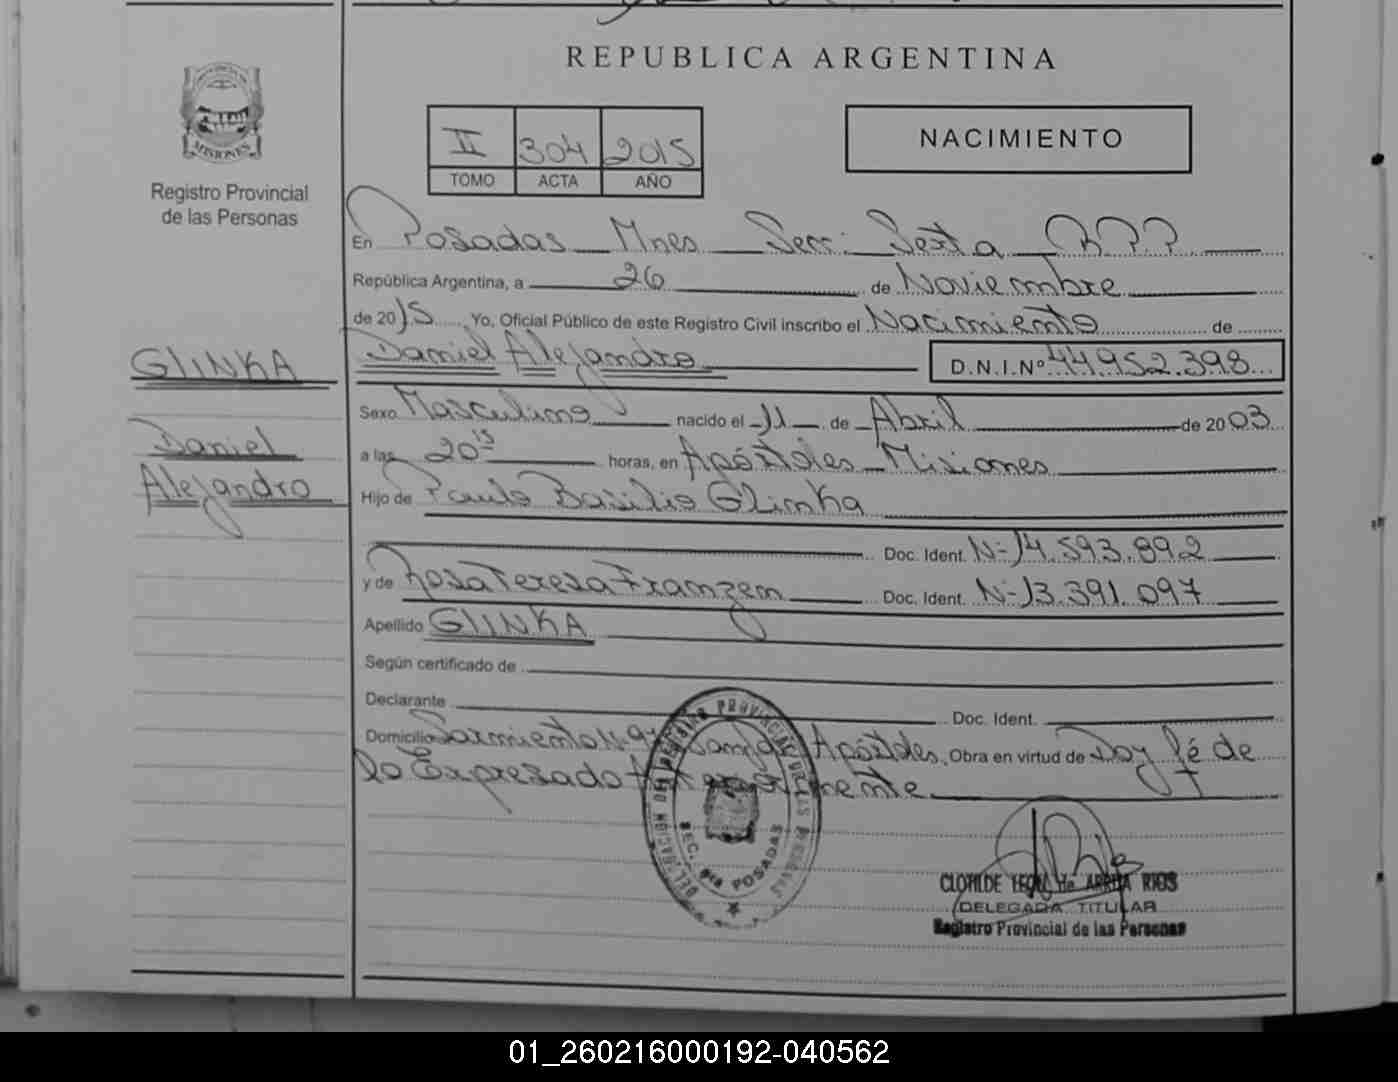 REPUBLICA ARGENTINA
MISIONES
Registro Provincial
de las Personas
II 304 2015
TOMO ACTA AÑO
NACIMIENTO
En Posadas Mnes Secc: Sexta R.P.P
República Argentina, a 26 de Noviembre
de 2015 Yo, Oficial Público de este Registro Civil inscribo el Nacimiento de
GLINKA
Daniel Alejandro D.N.I.Nº 44.952.398
Sexo Masculino nacido el 11 de Abril de 2003
Daniel
a las 20 15 horas, en Apóstoles Misiones
Alejandro
Hijo de Paulo Basilio Glinka
Doc. Ident. Nº 14.593.892
y de Rosa Teresa Franzen Doc. Ident. Nº 13.391.097
Apellido GLINKA
Según certificado de
Declarante Doc. Ident.
Domicilio Sarmiento Nº Apóstoles. Obra en virtud de Doy fé de
lo Expresado Anteriormente
SEC. 6ta POSADAS
CLOTILDE RIOS
DELEGADA TITULAR
Registro Provincial de las Personas
01_260216000192-040562